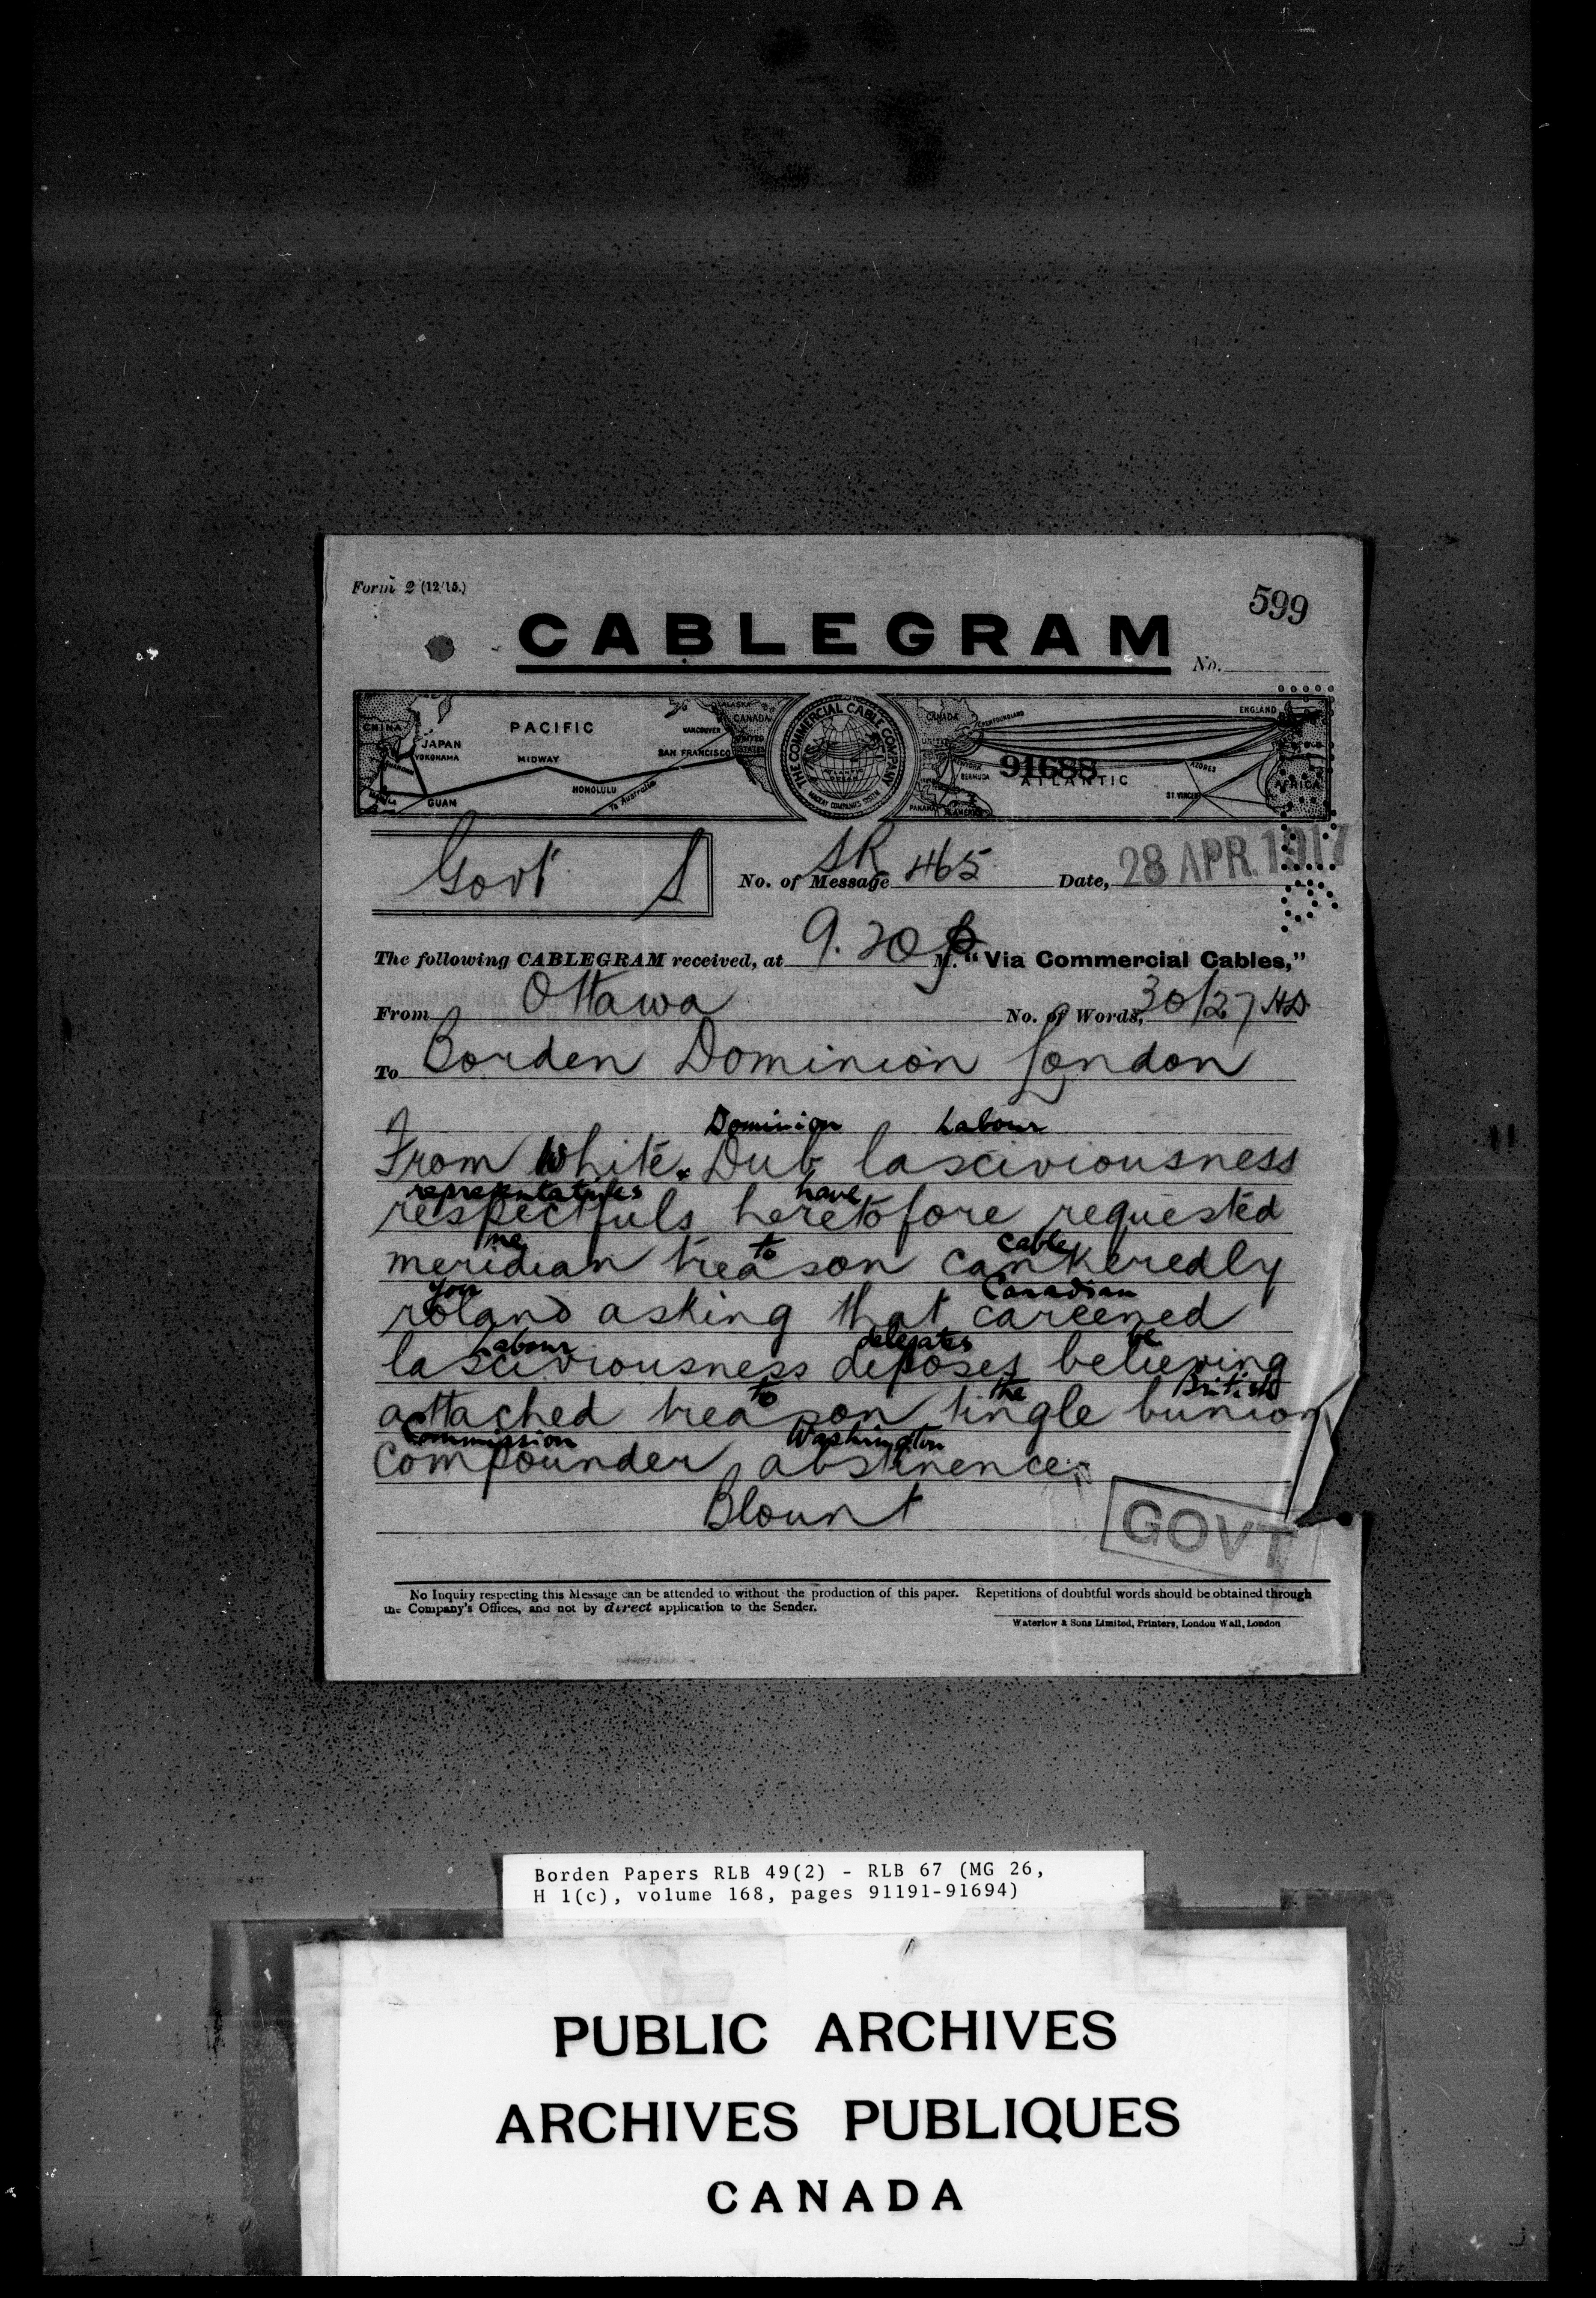 Form 2 (12/15.)
599
CABLEGRAM
No.
CHINA
JAPAN
YOKOHAMA
MANILA
GUAM
PACIFIC
MIDWAY
HONOLULU
To Australia
SAN FRANCISCO
VANCOUVER
ALASKA
CANADA
UNITED
STATES
THE COMMERCIAL CABLE COMPANY
ATLANTIC
OCEAN
MACKAY COMPANIES SYSTEM
CANADA
NEWFOUNDLAND
UNITED
NEW YORK
BERMUDA
PANAMA
S. AMERICA
91688
ATLANTIC
AZORES
ST. VINCENT
ENGLAND
AFRICA
Govt S
No. of Message SR 465 Date, 28 APR. 1917
The following CABLEGRAM received, at 9.20 p M. "Via Commercial Cables,"
From Ottawa No. of Words, 30/27
To Borden Dominion London
Dominion Labour
From White. Dub lasciviousness
representatives have
respectfuls heretofore requested
me to cable
meridian treason cankeredly
you Canadian
roland asking that careened
Labour delegates be
lasciviousness deposes believing
to the British
attached treason tingle bunion
Commission Washington
compounder abstinence.
Blount
GOVT
No Inquiry respecting this Message can be attended to without the production of this paper. Repetitions of doubtful words should be obtained through
the Company's Offices, and not by direct application to the Sender.
Waterlow & Sons Limited, Printers, London Wall, London
Borden Papers RLB 49(2) - RLB 67 (MG 26,
H 1(c), volume 168, pages 91191-91694)
PUBLIC ARCHIVES
ARCHIVES PUBLIQUES
CANADA